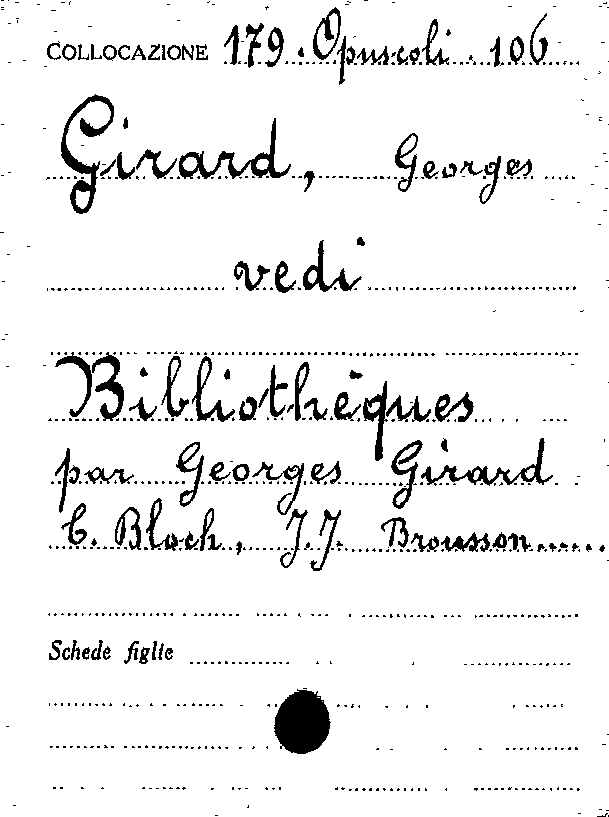 COLLOCAZIONE 179. Opuscoli. 106
Girard, Georges
vedi
Bibliothèques
par Georges Girard
C. Bloch, J.J. Brousson......
Schede figlie